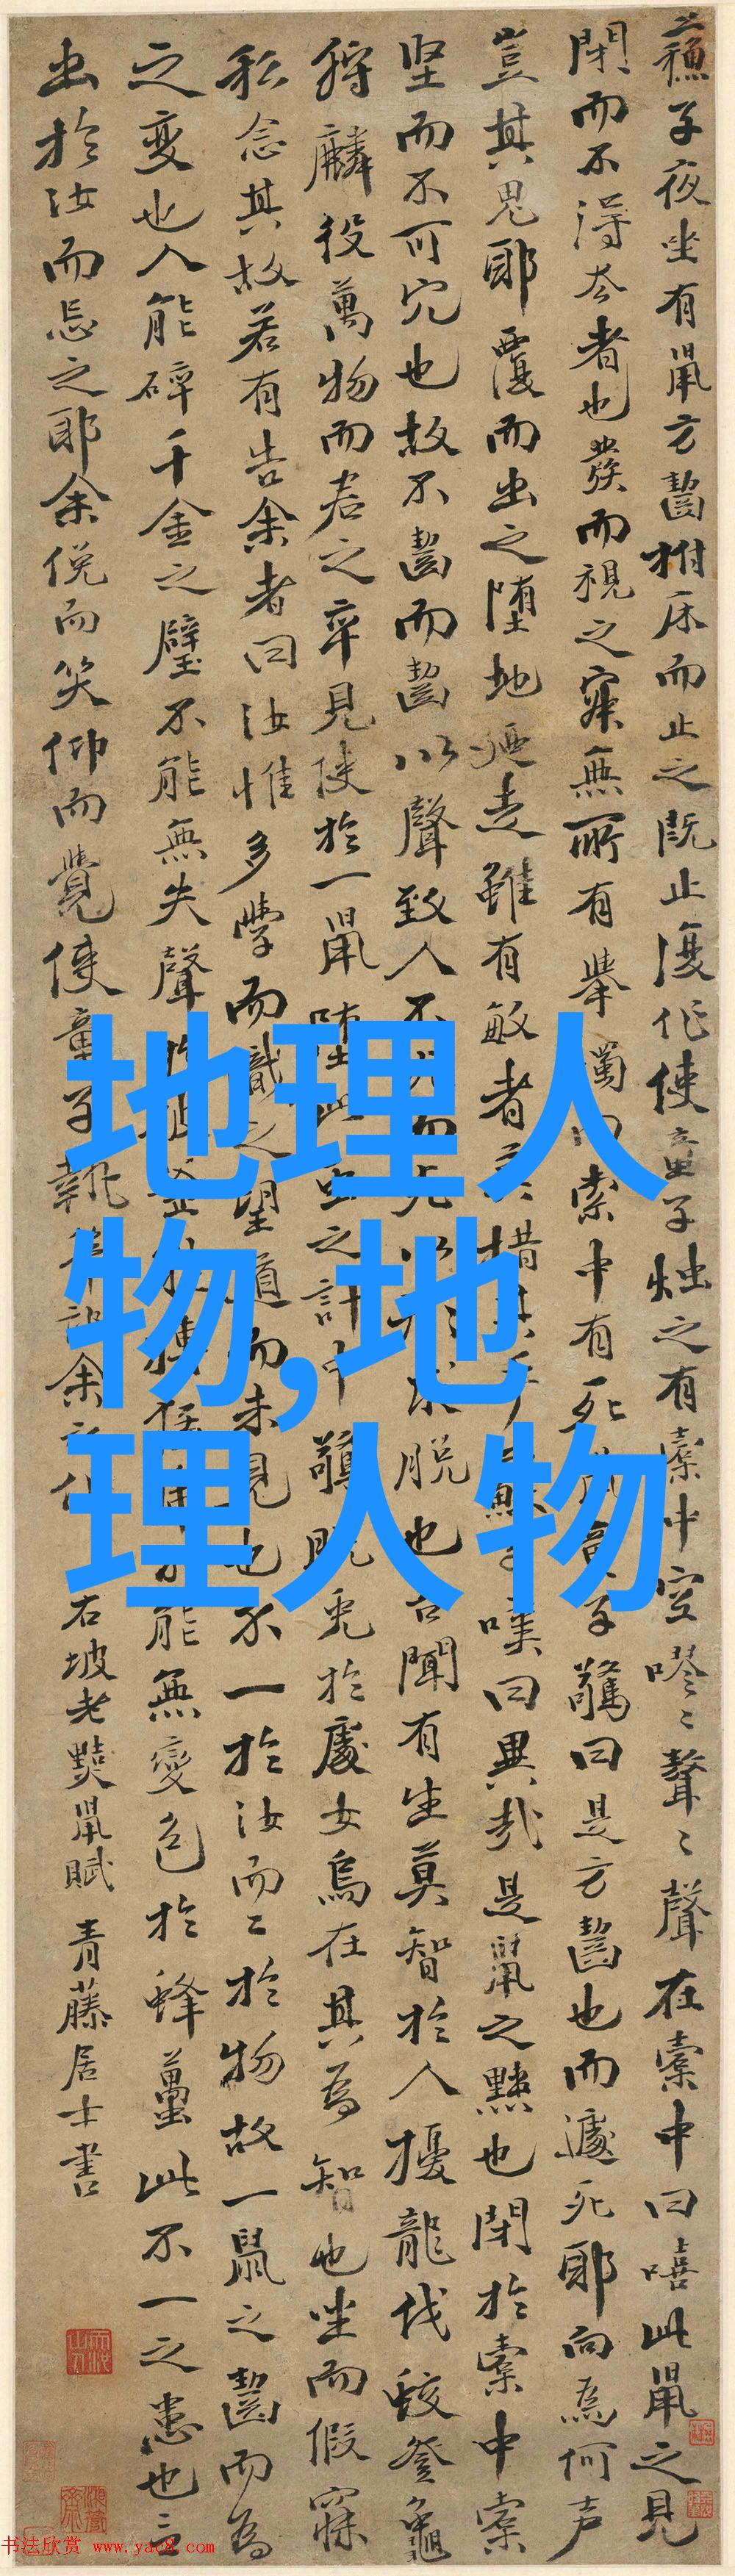 蘓子夜坐有鼠方齧拊床而止之既止復作使童子烛之有橐中空嘐〻聱〻聲在橐中曰嘻此鼠之見
閉而不得去者也發而視之寂無所有舉燭而索中有死鼠童子驚曰是方齧也而遽死耶向為何声
豈其鬼耶覆而出之堕地廼走雖有敏者莫措其手蘇子嘆曰異哉是鼠之黠也閉於橐中橐
坚而不可穴也故不齧而齧以聲致人不死而死以形求脱也吾聞有生莫智於人擾龍伐蛟登龜
狩麟役萬物而君之卒見使於一鼠堕此虫之計中驚脱兎於處女烏在其為智也坐而假寐
私念其故若有告余者曰汝惟多學而識之望道而未見也不一於汝而二於物故一鼠之齧而為
之變也人能碎千金之璧不能無失聲於破釜能搏猛虎不能無變色於蜂蠆此不一之患也言
出於汝而忘之耶余俛而笑仰而覺使童子執筆記余之作 右坡老黠鼠賦 青藤居士書
地理人
物,地
理人物
书法欣赏 www.yac8.com